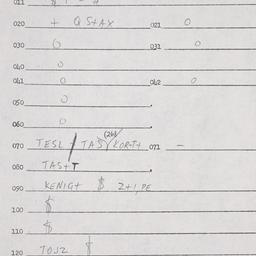 011
020 + QSTAX 021 0
030 0 031 0
040 0
041 0 042 0
050 0
060 0
070 TESL TAS (26) KORT+ 071 -
080 TAS+T
090 KENIGT $ 2+1, PE
100 $
110 $
120 TOJZ $